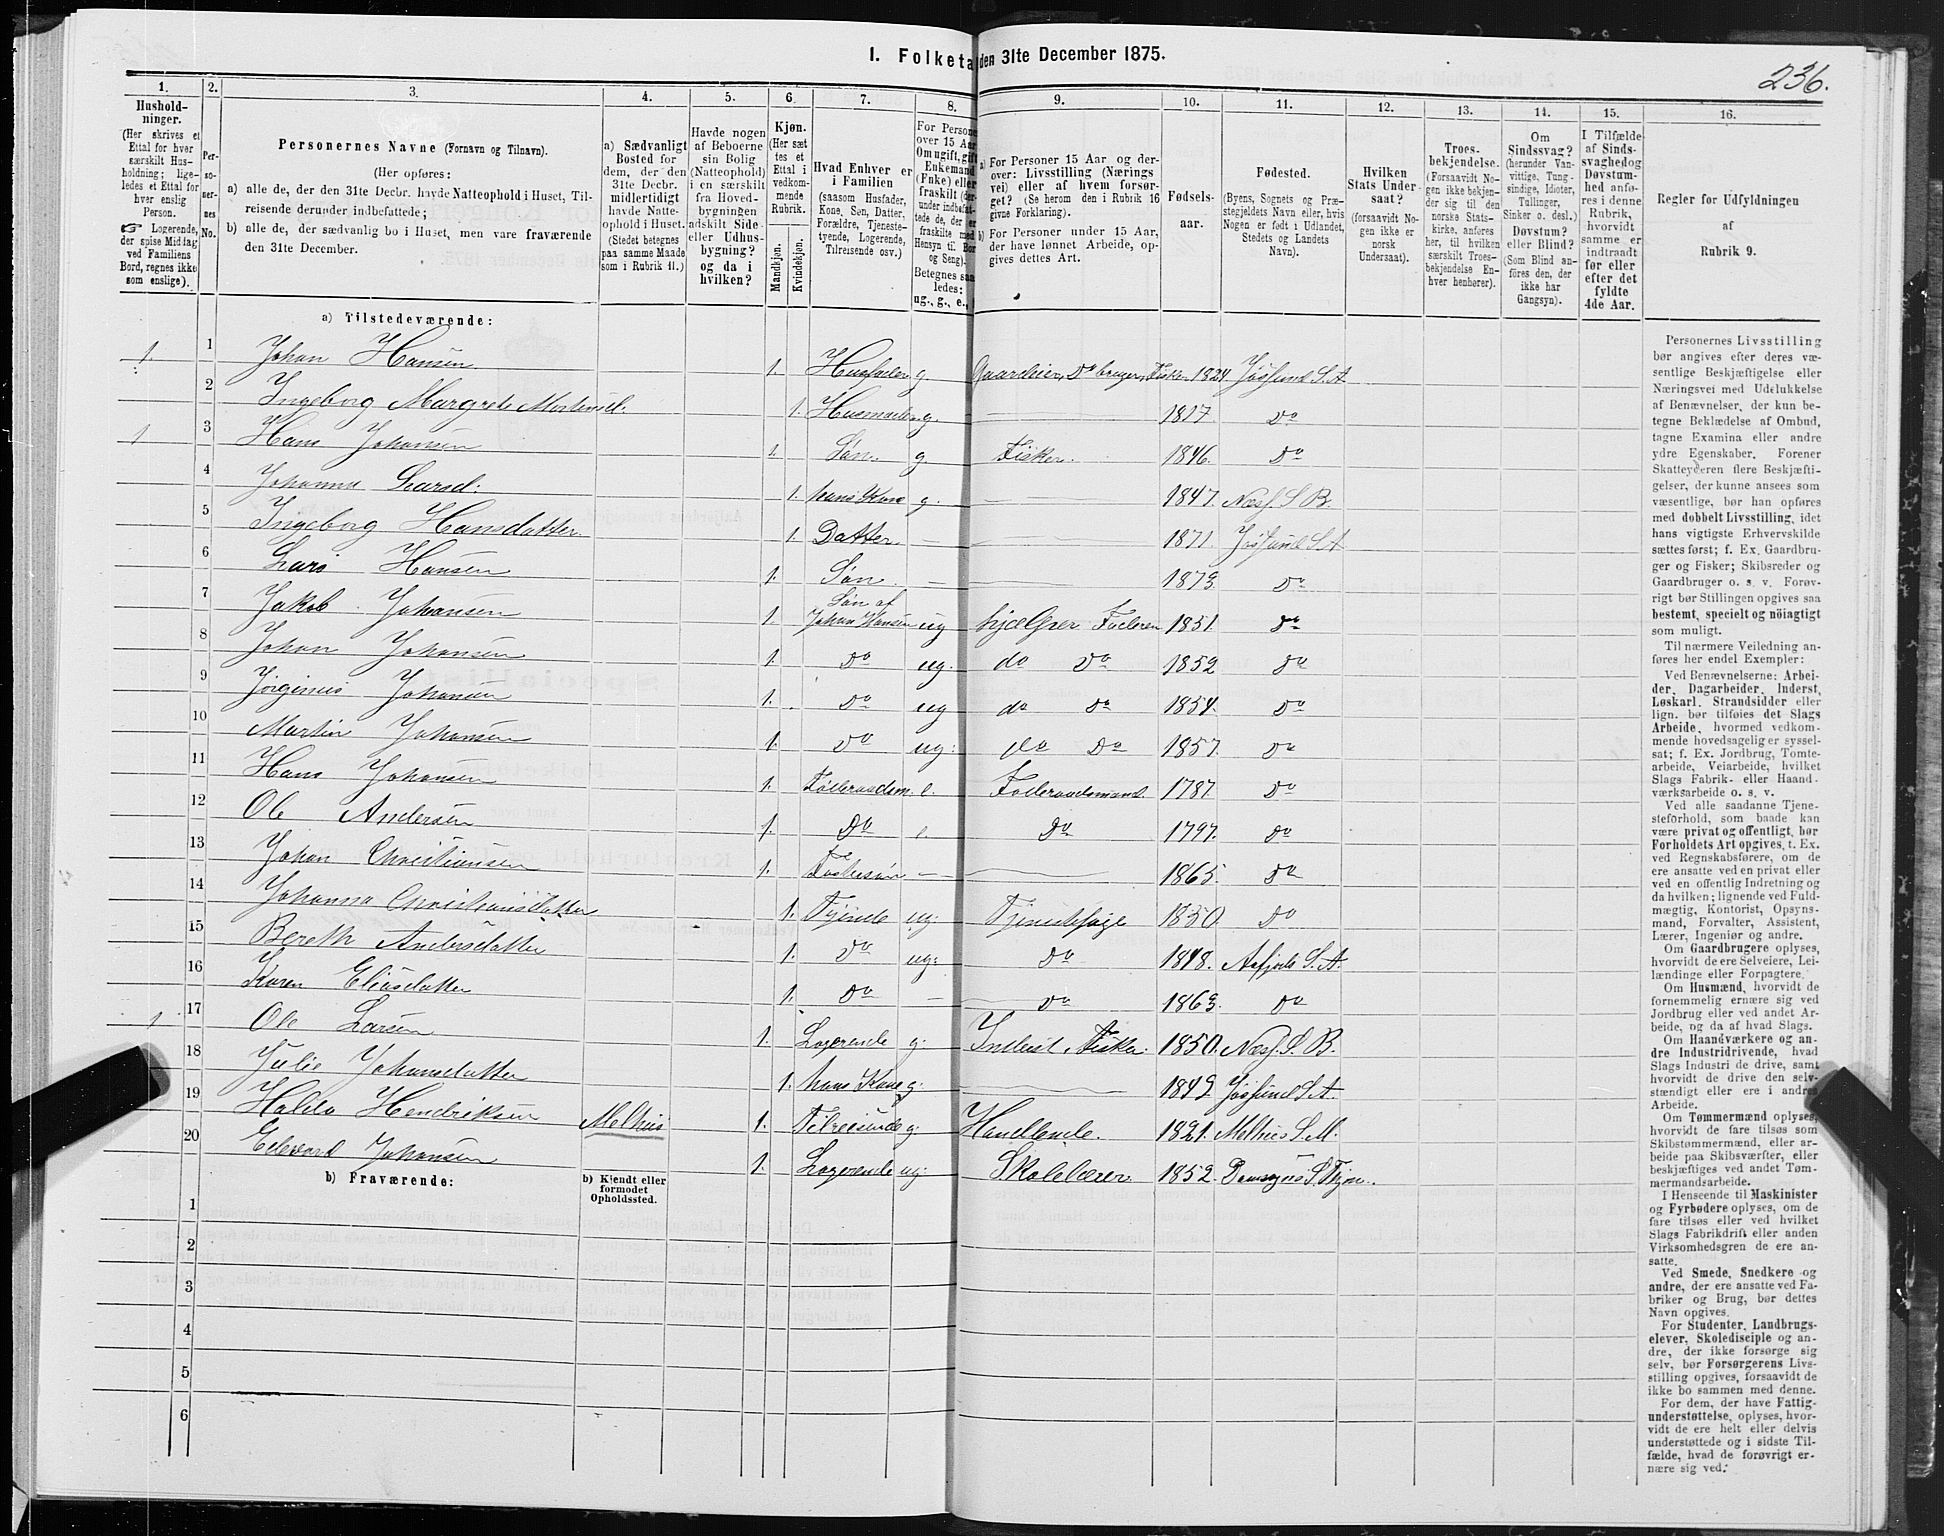 I. Folketa den 31te December 1875.
236.
1. 2. 3. 4. 5. 6. 7. 8. 9. 10. 11. 12. 13. 14. 15. 16.
Hushold-
ninger.
(Her skrives et
Ettal for hver
særskilt Hus-
holdning; lige-
ledes et Ettal for
hver enslig
Person.
☞ Logerende,
der spise Middag
ved Familiens
Bord, regnes ikke
som enslige).
Per-
so-
ner-
nes
No.
Personernes Navne (Fornavn og Tilnavn).
(Her opføres:
a) alle de, der den 31te Decbr. havde Natteophold i Huset, Til-
reisende derunder indbefattede;
b) alle de, der sædvanlig bo i Huset, men vare fraværende
den 31te December.
a) Sædvanligt
Bosted for
dem, der den
31te Decbr.
midlertidigt
havde Natte-
ophold i Huset.
(Stedet betegnes
paa samme Maade
som i Rubrik 11.)
Havde nogen
af Beboerne
sin Bolig
(Natteophold)
i en særskilt
fra Hoved-
bygningen
adskilt Side-
eller Udhus-
bygning?
og da i
hvilken?
Kjøn.
(Her sæt
tes et
Ettal i
vedkom-
mende
Rubrik.
Mandkjøn.
Kvindekjøn.
Hvad Enhver er
i Familien
(saasom Husfader,
Kone, Søn, Datter,
Forældre, Tjeneste-
tyende, Logerende,
Tilreisende osv.)
For Persone
over 15 Aar
Om ugift, gift
Enkemand
(Enke) eller
fraskilt (der-
under indbefat-
tede de, der er
fraskilte med
Hensyn til Bor
og Seng).
Betegnes saa
ledes:
ug., g., e.,
a) For Personer 15 Aar og der-
over: Livsstilling (Nærings
vei) eller af hvem forsør-
get? (Se herom den i Rubrik 16
givne Forklaring).
b) For Personer under 15 Aar,
der have lønnet Arbeide, op-
gives dettes Art.
Fødsels-
aar.
Fødested.
(Byens, Sognets og Præ-
stegjeldets Navn eller, hvis
Nogen er født i Udlandet,
Stedets og Landets
Navn).
Hvilken
Stats Under-
saat?
(forsaavidt No-
gen ikke er
norsk
Undersaat).
Troes-
bekjendelse.
(Forsaavidt No-
gen ikke bekjen-
der sig til den
norske Stats-
kirke, anføres
her, til hvilken
særskilt Troes-
bekjendelse En-
hver henhører).
Om
Sindssvag?
(herunder Van-
vittige, Tung-
sindige, Idioter,
Tullinger,
Sinker o. desl.)
Døvstum?
eller Blind?
(Som Blind an-
føres den, der
ikke har
Gangsyn).
I Tilfælde
af Sinds-
svaghed og
Døvstum-
hed anfø-
res i denne
Rubrik,
hvorvidt
samme er
indtraadt
før eller
efter det
fyldte
4de Aar.
Regler for Udfyldningen
af
Rubrik 9.
a) Tilstedeværende:
1. 1 Johan Hansen 1. Husfader g. Gaardeier, Do bruger, Fisker 1824 Jøssund S. A
2 Ingeborg Margrete Mortensd. 1. Husmoder g. 1817. Do
1 3 Hans Johansen 1. Søn. g. Fisker. 1846. Do
4 Johanna Larsd. 1. hans Kone g. 1847. Næsf. S. B.
5 Ingeborg Hansdatter. 1. Datter. 1871. Jøssund S. A
6 Lars Hansen 1. Søn. 1873. Do
7 Jakob Johansen 1. Søn af Johan Hansen ug hjælper Faderen 1851. Do
8 Johan Johansen 1. Do ug. do Do 1852 Do
9 Jørginus Johansen 1. Do ug do Do 1854. Do
10 Martin Johansen 1. Do ug: do Do 1857. Do
11 Hans Johansen 1. Føderaadsm. e. Føderaadsmand. 1787. Do
12 Ole Andersen 1. Do e. Do 1797. Do
13 Johan Christiansen 1. Fostersøn 1865. Do
14 Johanna Christiansdatter 1. Tjende ug: Tjenestepige 1850. Do
15 Bereth Andersdatter 1. Do ug: Do 1848. Aafjords S. A.
16 Karen Eliasdatter 1. Do Do 1863. Do
1 17 Ole Larsen 1. Logerende g: Inderst, Fisker. 1850. Næsf. S. B.
18 Julie Johansdatter 1. hans Kone g: 1849 Jøssund S. A.
19 Haldo Hendriksen Melhus 1. Tilreisende g: Handlende. 1821. Melhus S. M.
20 Edevard Johansen 1. Logerende ug: Skolelærer 1852.
b) Fraværende:
b) Kjendt eller
formodet
Opholdssted.
1
2
3
4
5
6
Personernes Livsstilling
bør angives efter deres væ-
sentlige Beskjæftigelse eller
Næringsvei med Udelukkelse
af Benævnelser, der kun be-
tegne Beklædelse af Ombud,
tagne Examina eller andre
ydre Egenskaber. Forener
Skatteyderen flere Beskjæfti-
gelser, der kunne ansees som
væsentlige, bør han opføres
med dobbelt Livsstilling, idet
hans vigtigste Erhvervskilde
sættes først; f. Ex. Gaardbru-
ger og Fisker; Skibsreder og
Gaardbruger o. s. v. Forøv-
rigt bør Stillingen opgives saa
bestemt, specielt og nöiagtigt
som muligt.
Til nærmere Veiledning an-
føres her endel Exempler:
Ved Benævnelserne: Arbei-
der, Dagarbeider, Inderst,
Løskarl, Strandsidder eller
lign. bør tilføies det Slags
Arbeide, hvormed vedkom-
mende hovedsagelig er syssel-
sat; f. Ex. Jordbrug, Tomte-
arbeide, Veiarbeide, hvilket
Slags Fabrik- eller Haand-
værksarbeide o. s. v.
Ved alle saadanne Tjene-
steforhold, som baade kan
være privat og offentligt, bør
Forholdets Art opgives, t. Ex.
ved Regnskabsførere, om de
ere ansatte ved en privat eller
ved en offentlig Indretning og
da hvilken; lignende ved Fuld-
mægtig, Kontorist, Opsyns-
mand, Forvalter, Assistent,
Lærer, Ingeniør og andre.
Om Gaardbrugere oplyses,
hvorvidt de ere Selveiere, Lei-
lændinge eller Forpagtere.
Om Husmænd, hvorvidt de
fornemmelig ernære sig ved
Jordbrug eller ved andet Ar-
beide, og da af hvad Slags.
Om Haandværkere og an-
dre Industridrivende, hvad
Slags Industri de drive, samt
hvorvidt de drive den selv-
stændigt eller ere i andres
Arbeide.
Om Tømmermænd oplyses,
hvorvidt de fare tilsøs som
Skibstømmermænd, eller ar-
beide paa Skibsværfter, eller
beskjæftiges ved andet Tøm-
mermandsarbeide.
I Henseende til Maskinister
og Fyrbødere oplyses, om de
fare tilsøs eller ved hvilket
Slags Fabrikdrift eller anden
Virksomhedsgren de ere an-
satte.
Ved Smede, Snedkere og
andre, der ere ansatte ved Fa-
briker og Brug, bør dettes
Navn opgives.
For Studenter, Landbrugs-
elever, Skoledisciple og an-
dre, der ikke forsørge sig
selv, bør Forsørgerens Livs-
stilling opgives, forsaavidt de
ikke bo sammen med denne.
For dem, der have Fattig-
understøttelse, oplyses, hvor-
vidt de ere helt eller delvis
understøttede og i sidste Til-
fælde, hvad de forøvrigt er-
nære sig ved.